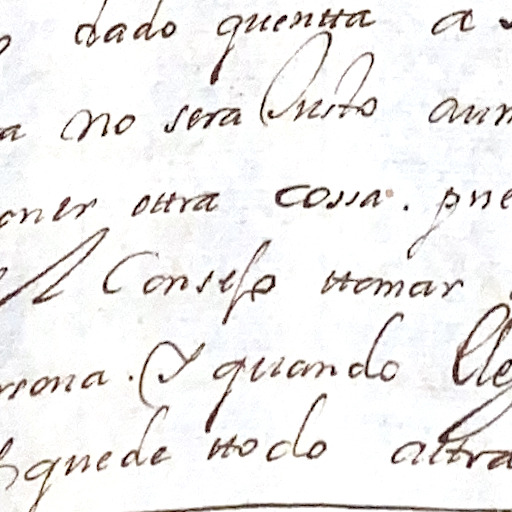 dado quentta a
a no sera Justo aun
oner ottra cossa. pue
el Consejo ttomar
rsona. Y quando lleg
quede ttodo attra